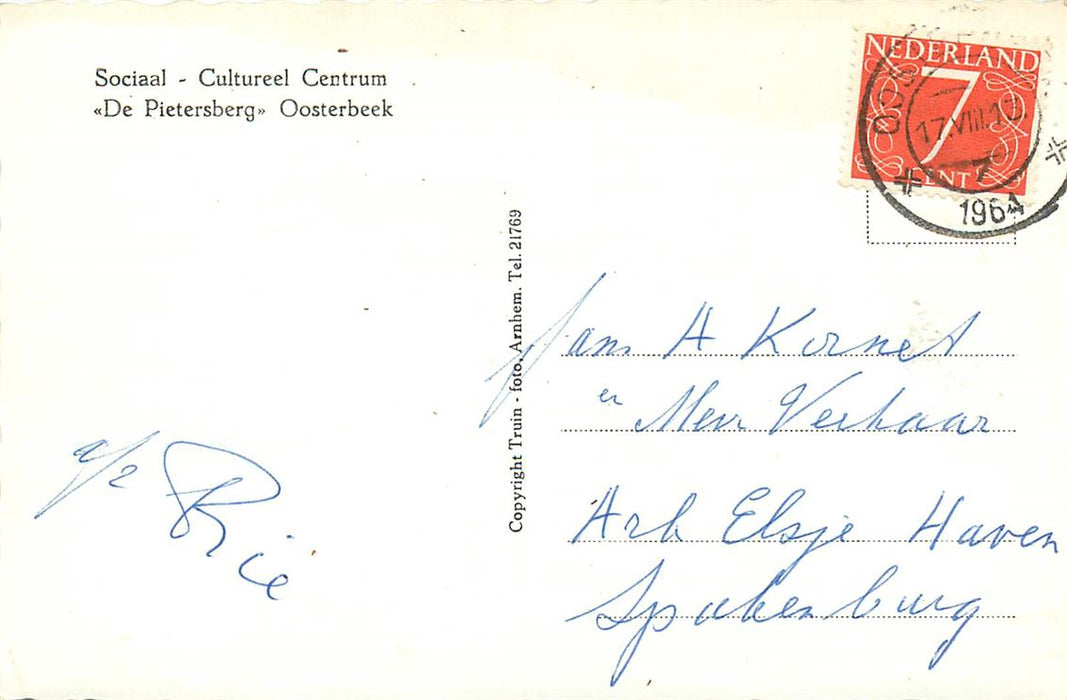 Sociaal - Cultureel Centrum
«De Pietersberg» Oosterbeek
NEDERLAND
7
CENT
17.VIII.17
1964
Copyright Truin - foto, Arnhem. Tel. 21769
Jans A Kornet
en Mevr Verhaar
Ark Elsje Haven
Spakenburg
a/z
Rie